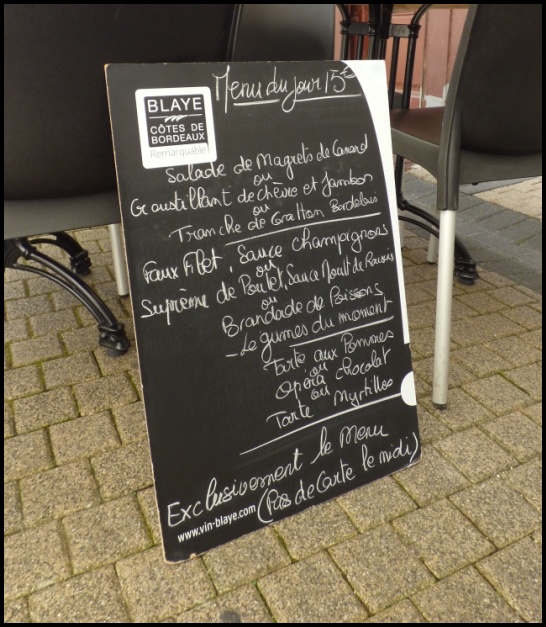 Menu du jour 15€
BLAYE
CÔTES DE
BORDEAUX
Remarquable!
Salade de Magrets de Canard
ou
Croustillant de chèvre et Jambon
ou
Tranche de Gratton Bordelais
Faux Filet, Sauce champignons
ou
Suprême de Poulet, Sauce Mout de Raisins
ou
Brandade de Poissons
- Legumes du moment
Tarte aux Pommes
ou
Opéra chocolat
ou
Tarte Myrtilles
Exclusivement le Menu
(Pas de Carte le midi)
www.vin-blaye.com